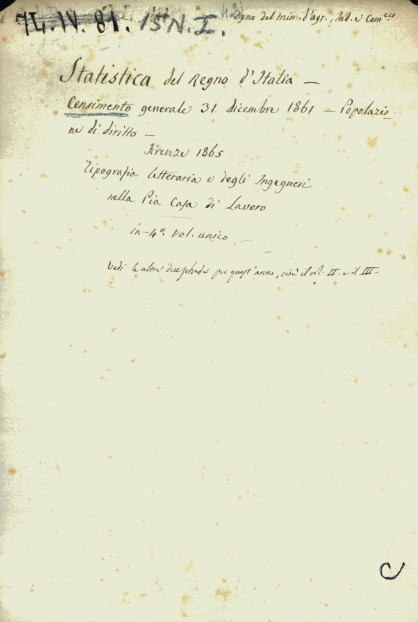 74. IV. 81. 15 N. I.
Dono del min. d'agr., Ind. e Com.cio
Statistica del Regno d'Italia —
Censimento generale 31. dicembre 1861 — Popolazio-
ne di diritto —
Firenze 1865
Tipografia letteraria e degli Ingegneri
nella Pia Casa di Lavoro
in-4º. vol. unico —
Vedi le altre due schede per quest'anno, cioè il vol. II. e il III.